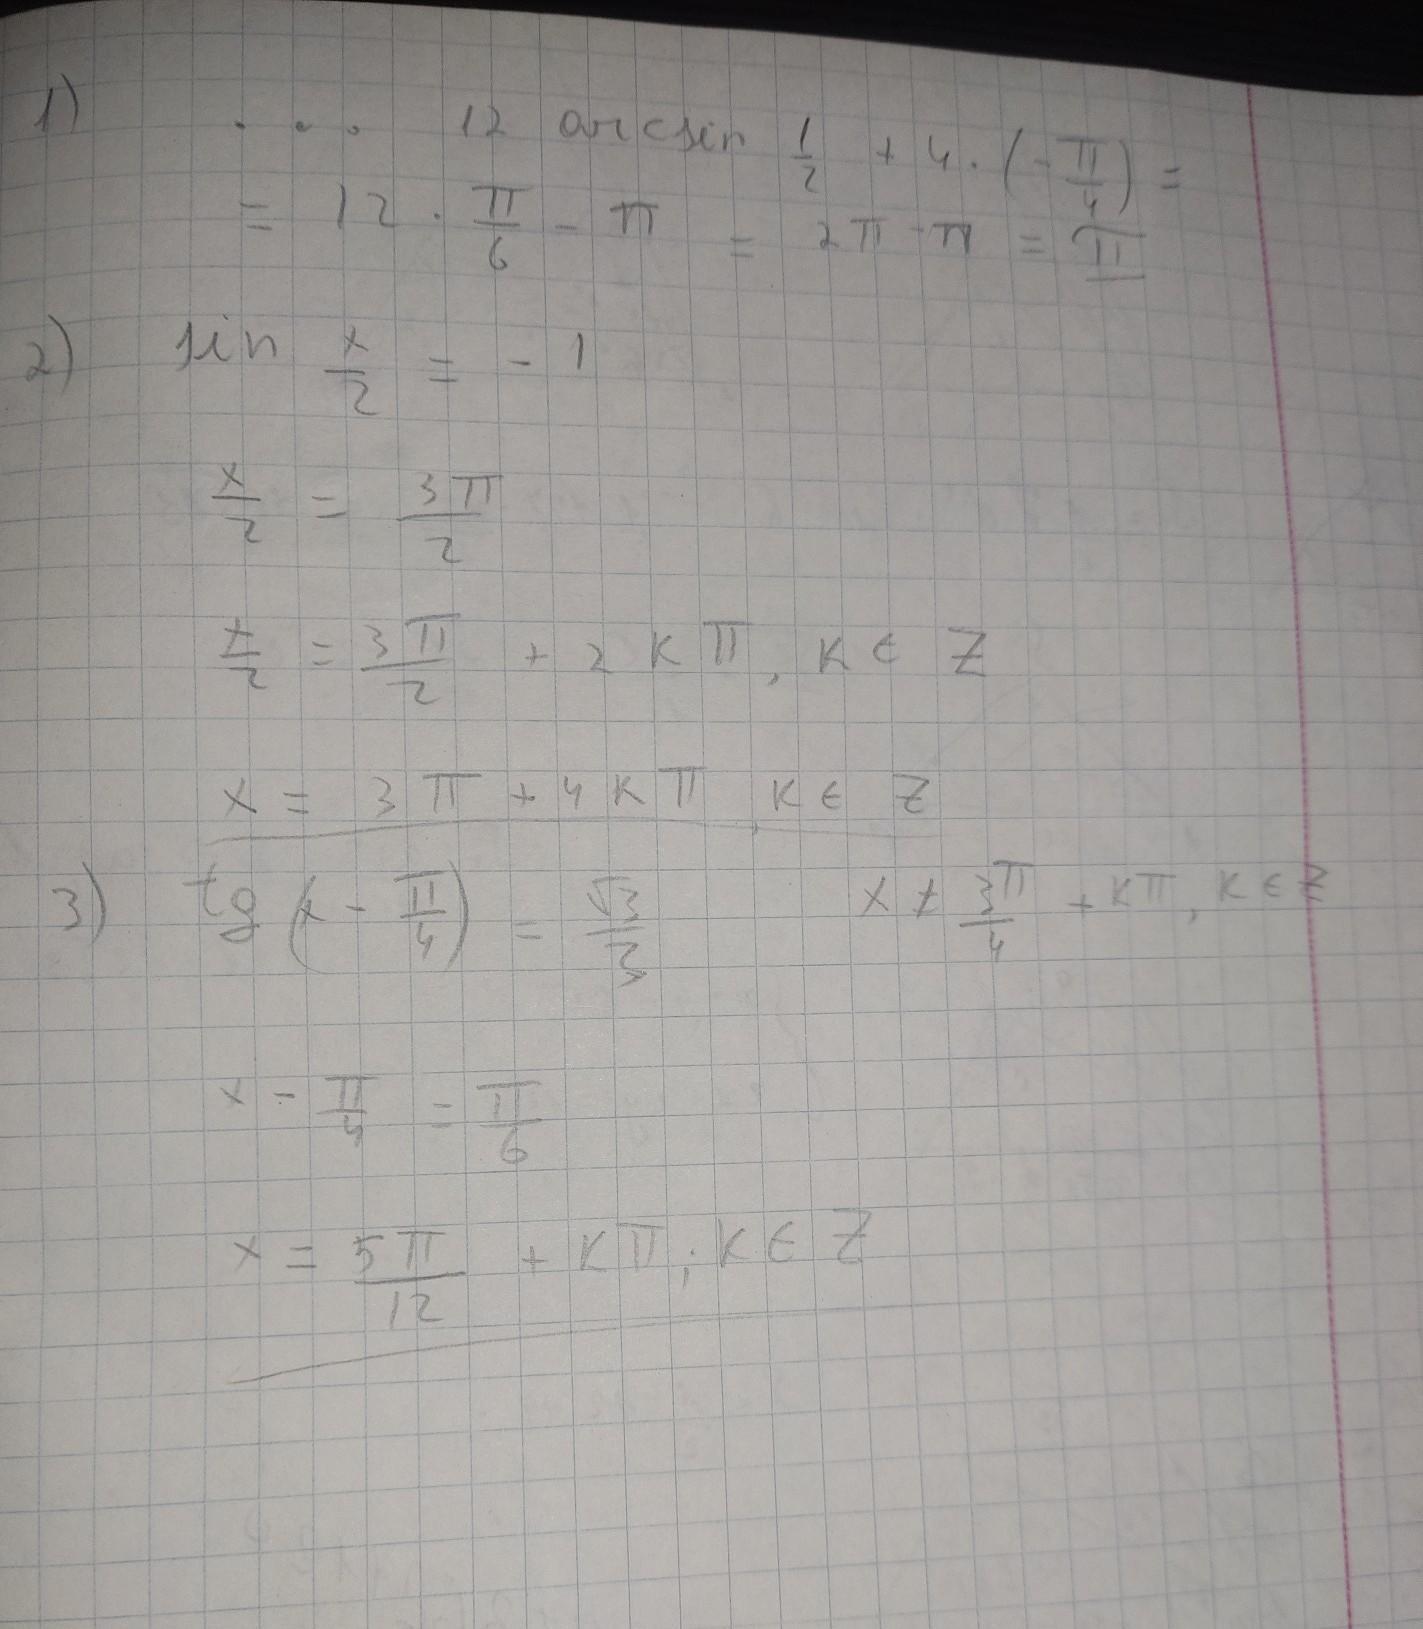 1) ... 12 arcsin 1/2 + 4 · (-π/4) =
= 12 · π/6 - π = 2π - π = π
2) sin x/2 = - 1
x/2 = 3π/2
x/2 = 3π/2 + 2kπ, k ∈ Z
x = 3π + 4kπ, k ∈ Z
3) tg (x - π/4) = √3/3 x ≠ 3π/4 + kπ, k ∈ Z
x - π/4 = π/6
x = 5π/12 + kπ; k ∈ Z